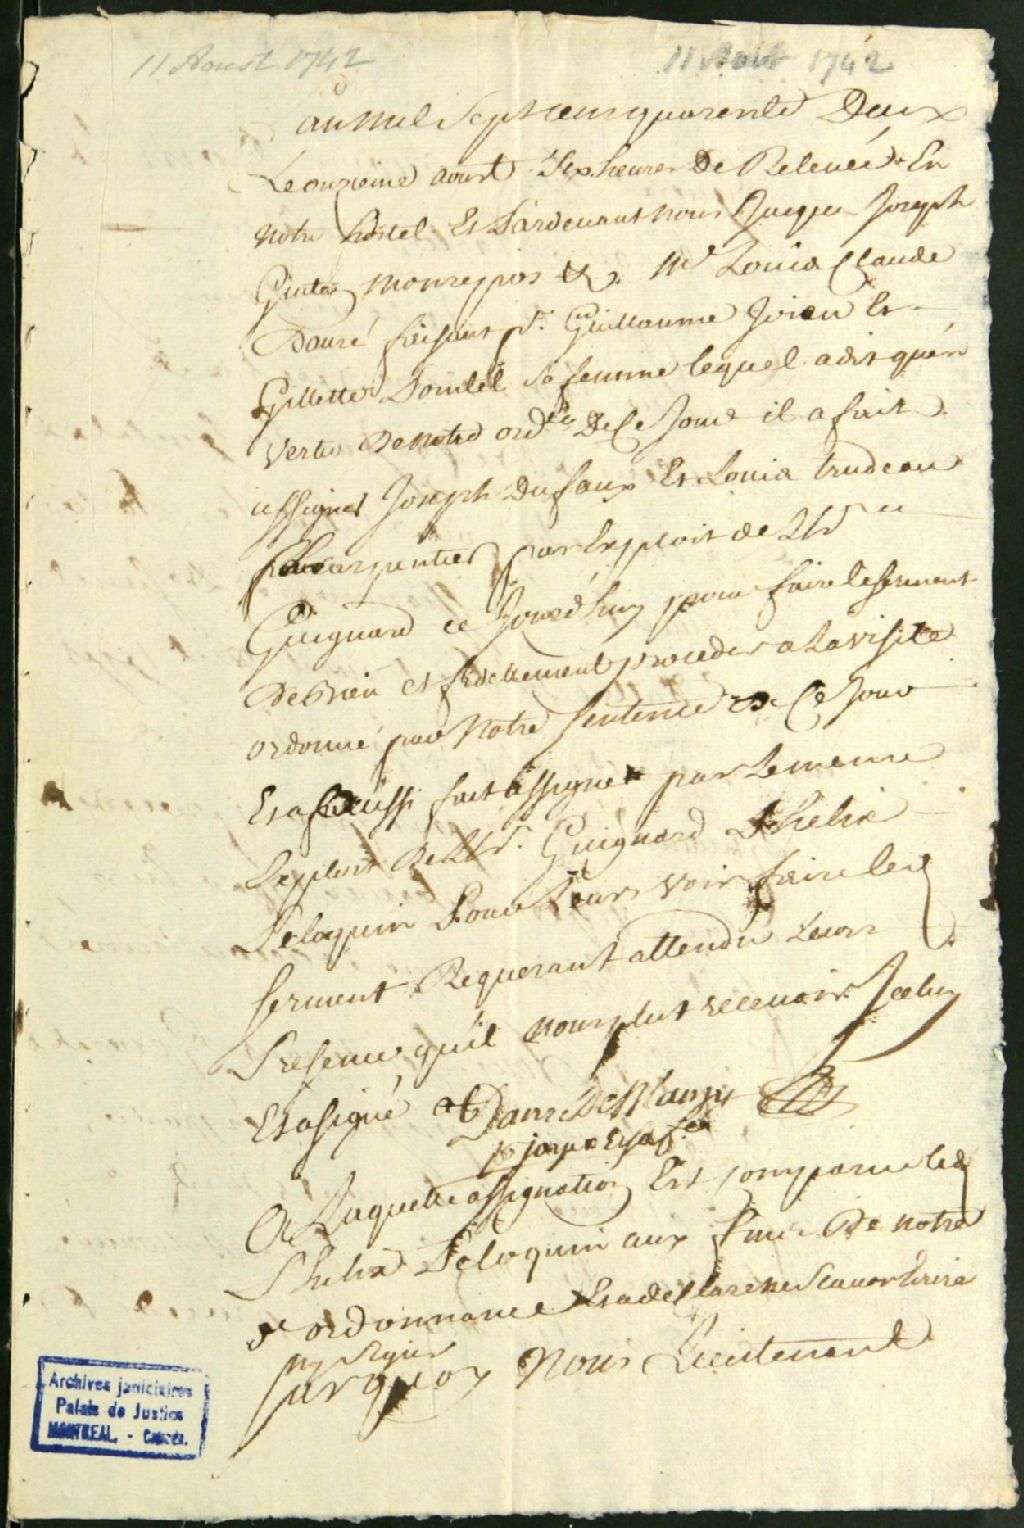 11 Aoust 1742
11 Aout 1742
an Mil Sept cens quarente Deux
Le onzieme aoust Six heures De Relevée En
notre hostel Et Pardevant nous Jacques Joseph
Guiton Monrepos &c. Me Louis Claude
Danré faisant pr. Guillaume Jorien Et
Gillette Pointel Sa femme lequel a dit qu'en
Vertu De notre ordce De Ce Jour il a fait
assigner Joseph Dufaux Et Louis trudeau
charpentier par Exploit de
Guignard ce Jourd'huy pour faire le serment
De bien et fidellement proceder a La visite
ordonné par Notre Sentence De Ce Jour
Et a aussi fait assigner par Le meme
Exploit De Guignard Phelix
Peloquin Pour Leur voir faire led
Serment Requerant attendu Leur
Presence qu'il nous plut recevoir Iceluy
Et a signé Danré De Blanzy
A Laquelle assignation Est comparu led
Phelix Peloquin aux fins De notre
de ordonnance Et a declaré ne Scavoir Ecrire
ny Signer
Sur quoy Nous Lieutenant
Archives judiciaires
Palais de Justice
MONTREAL. - Canada.